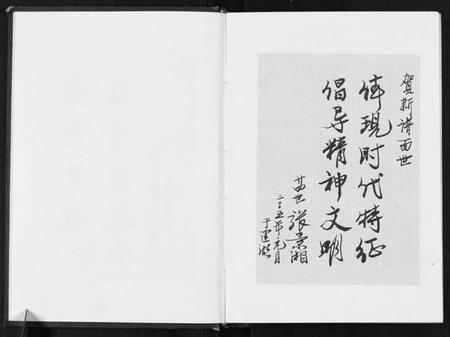 贺新谱面世
体现时代特征
倡导精神文明
廿世 张景湘
二〇〇五年元月
于建湖